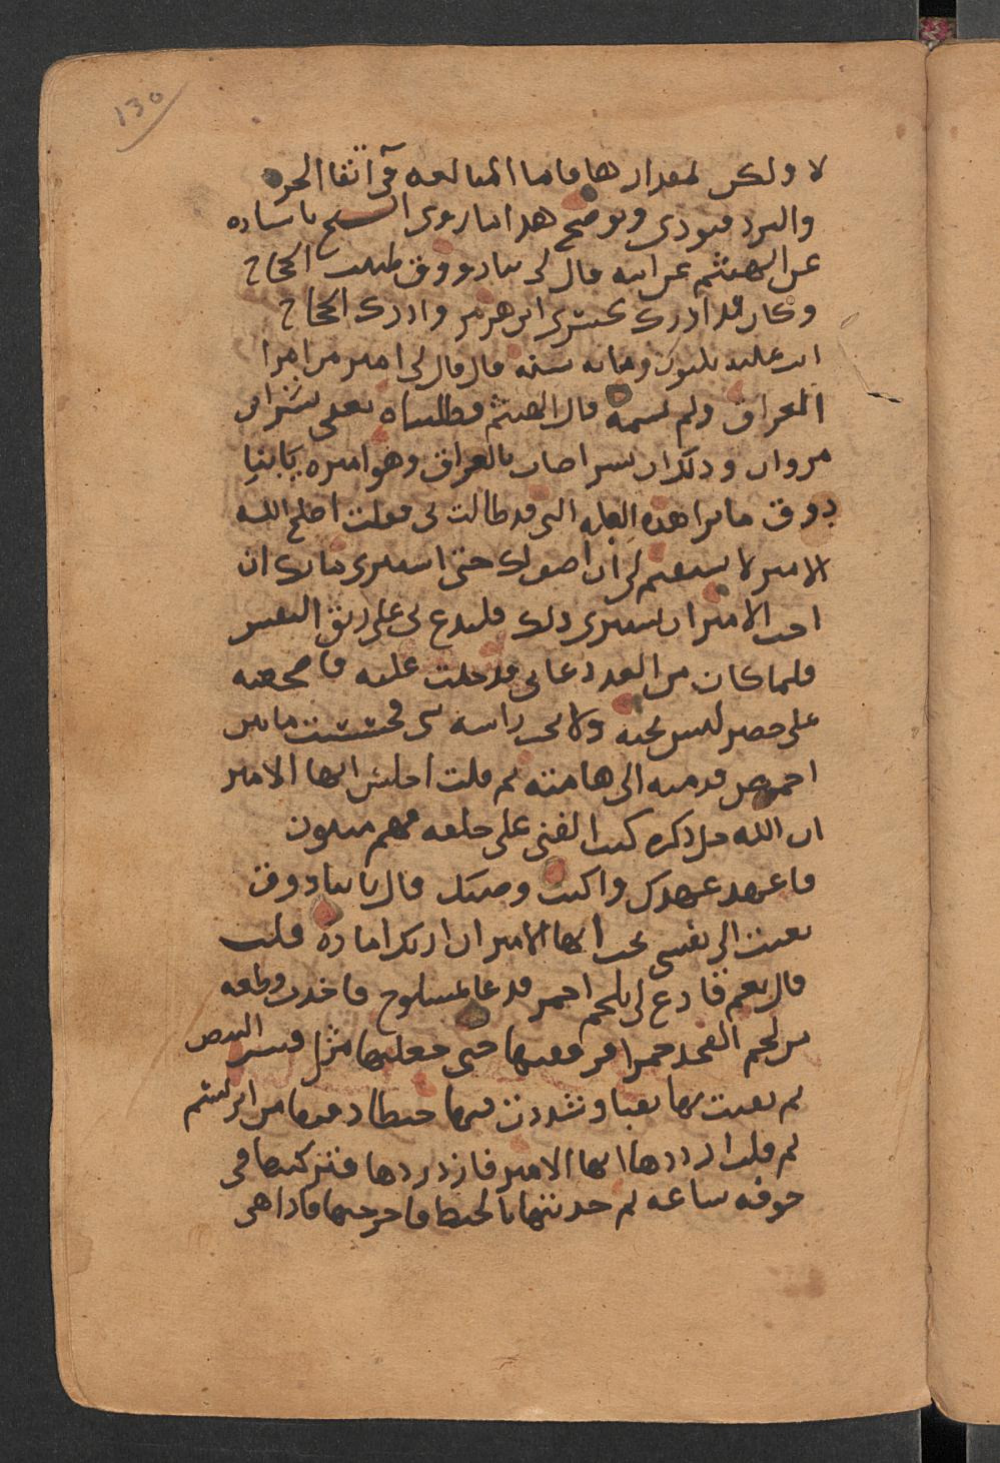 130
لا ولكن لمقدارها فاما المبالغه في اتقا الحر
والبرد فيودى ويوضح هذا ما روى الشيخ باسناده
عن الهيثم عن ابيه قال لى تيادووق طبيب الحجاج
وكان قد ادرك كسرى ابن هرمز وادرك الحجاج
اتت عليه ثلثون ومايه سنه قال قال لى امير من امرا
العراق ولم يسمه قال الهيثم فطلبناه يعنى بشر ابن
مروان وذلك ان بشرا صار بالعراق وهو اميره يا تيا
دوق ما ترا هذه العله التى قد طالت بى فقلت اصلح الله
الامير لا يستقيم لى ان اصف لك حتى استبرى ما بك ان
احب الامير ان استبرى ذلك فليدع بى على ريق النفس
فلما كان من الغد دعا بى فدخلت عليه فاضجعته
على حصير ليس تحته ولا تحت راسه شى فجسست ما بين
اخمص قدميه الى هامته ثم قلت اجلس ايها الامير
ان الله جل ذكره كتب الفنى على خلقه فهم ميتون
فاعهد عهدك واكتب وصيتك قال يا تيادوق
نعيت الى نفسى تحب ايها الامير ان اريك اماره قلت
قال نعم فادع لى بلحم احمر فدعا بمسلوخ فاخذت قطعه
من لحم الفخد حمرا فرققتها حتى جعلتها مثل قشر البيض
ثم نقبت بها نقبا وشددت فيها خيطا دقيقا من ابريسم
ثم قلت ازدردها ايها الامير فازدردها فتركتها فى
جوفه ساعه ثم جذبتها بالخيط فاخرجتها فاذا هى